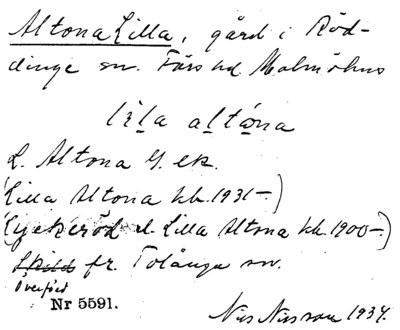 Altona Lilla, gård i Röd-
dinge sn. Färs hd Malmöhus
lila altona
L. Altona G. ek.
(Lilla Altona kb. 1931-)
(Lyckeröd el. Lilla Altona kb. 1900-)
fr. Tolånga sn.
Överfört
Nr 5591.
Nils Nilsson 1934.